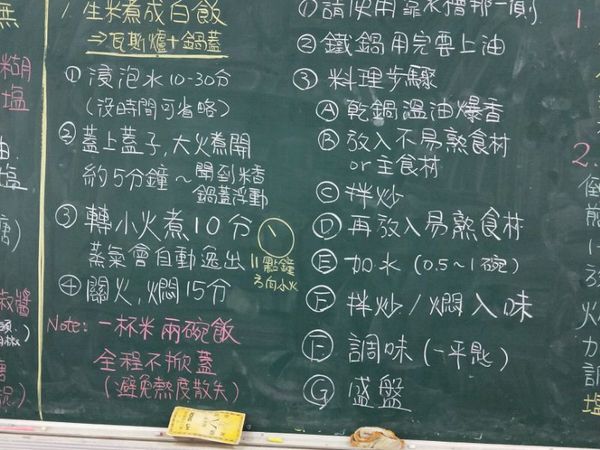 無
糊
塩
1.生米煮成白飯
⇒瓦斯爐+鍋蓋
① 浸泡水10-30分
(沒時間可省略)
② 蓋上蓋子,大火煮開
約5分鐘~聞到米香
鍋蓋浮動
③ 轉小火煮10分
蒸氣會自動逸出
11點鐘
方向小火
④ 關火,燜15分
Note: 一杯米兩碗飯
全程不掀蓋
(避免熱度散失)
①請使用靠水槽那一側
② 鐵鍋用完要上油
③ 料理步驟
Ⓐ 乾鍋溫油爆香
Ⓑ 放入不易熟食材
or主食材
Ⓒ 拌炒
Ⓓ 再放入易熟食材
Ⓔ 加水 (0.5~1碗)
Ⓕ 拌炒/燜入味
Ⓕ 調味 (一平匙)
Ⓖ 盛盤
1.
2.